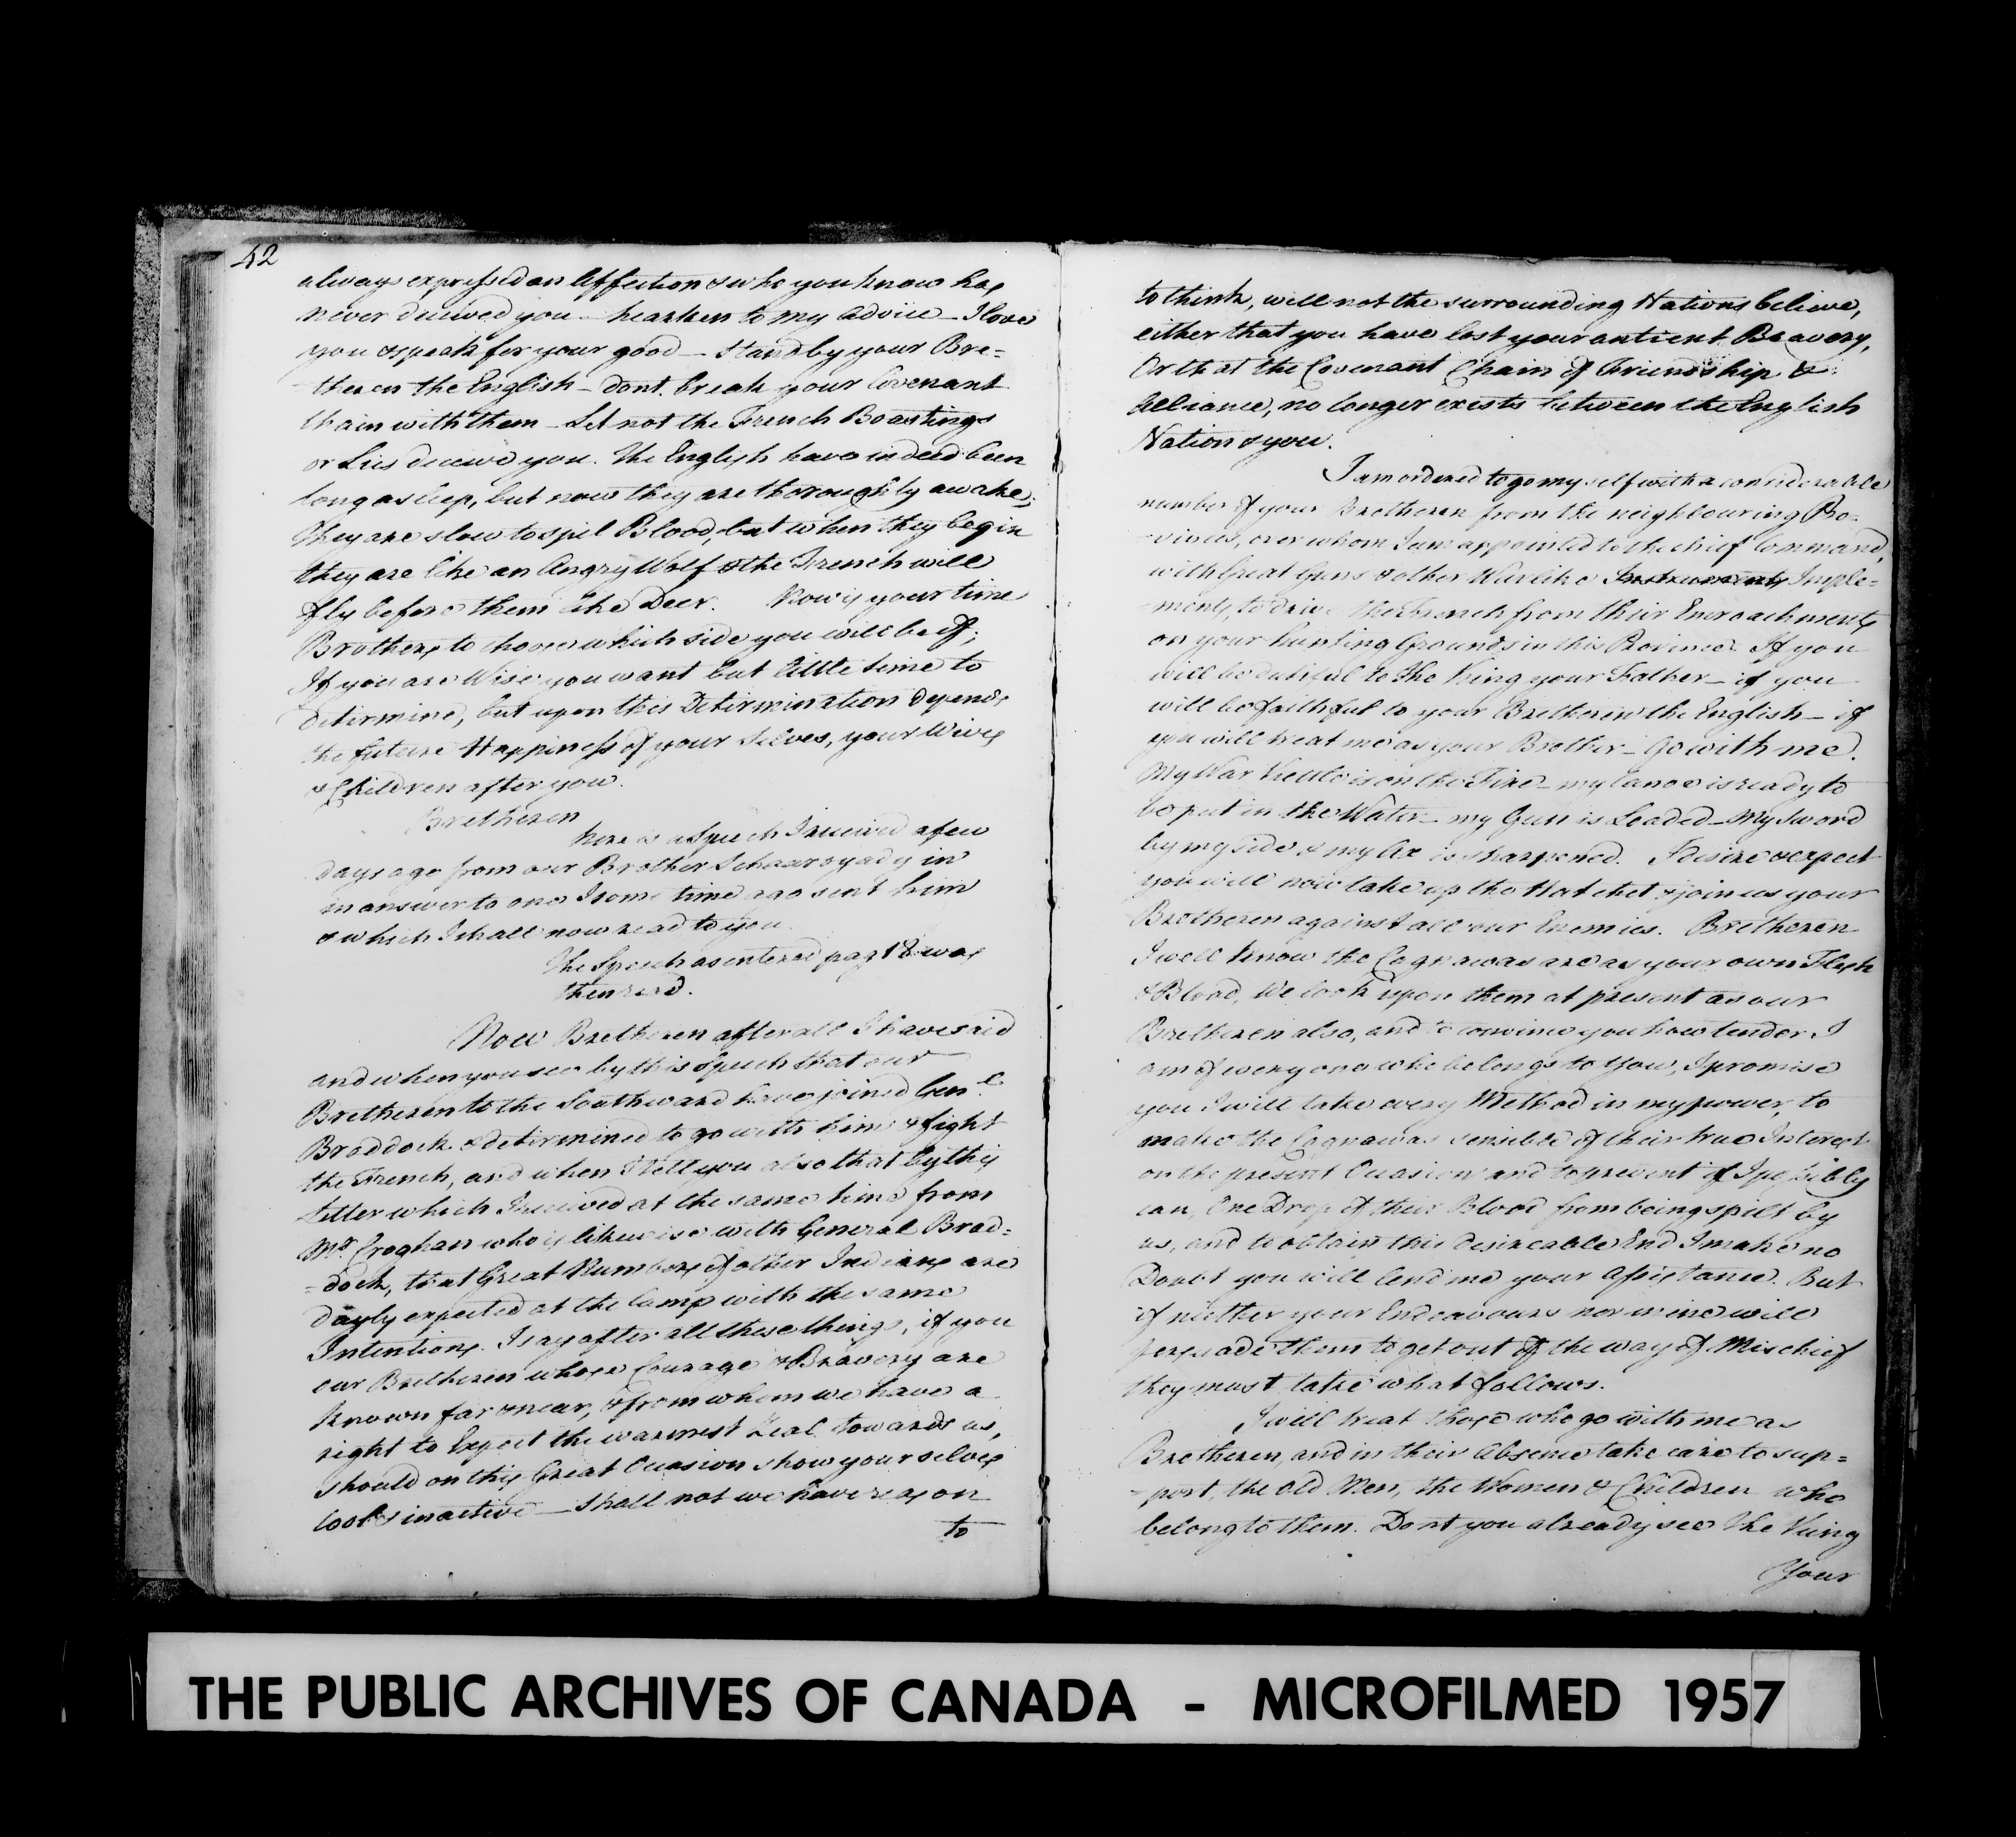 42
always expressed an Affection & who you know has
never deceived you - hearken to my Advice - I love
you & speak for your good - Stand by your Bre=
theren the English - dont break your Covenant
Chain with them - Let not the French Boastings
or Lies deceive you. The English have indeed been
long asleep, but now they are thoroughly awake;
They are slow to spil Blood, but when they begin
they are like an Angry Wolf & the French will
fly before them like Deer. Now is your time
Brothers to choose which side you will be of;
If you are Wise you want but little time to
determine, but upon this Determination depends
the future Happiness of your Selves, your Wives
& Children after you.
Bretheren
here is a Speech I received a few
days ago from our Brother Schaaroyady in
in answer to one I some time ago sent him
& which I shall now read to you.
The Speech as entered pag 18 was
then read.
Now Bretheren after all I have said
and when you see by this Speech that our
Bretheren to the Southward have joined Genl.
Braddock & determined to go with him & fight
the French, and when I tell you also that by this
Letter which I received at the same time from
Mr. Croghan who is likewise with General Brad=
=dock, that Great Numbers of other Indians are
dayly expected at the Camp with the same
Intentions. I say after all these things, if you
our Bretheren whose Courage & Bravery are
known far & near, & from whom we have a
right to Expect the warmest Zeal towards us,
should on this Great Occasion show your selves
cool & inactive - Shall not we have reason
to
to think, will not the surrounding Nations believe,
either that you have lost your antient Bravery,
Or that the Covenant Chain of Friendship &
Alliance, no longer exists between the English
Nation & you.
I am ordered to go my self with a considerable
number of your Bretheren from the neighbouring Pro=
=vinces, over whom I am appointed to the chief Command,
with Great Guns & other Warlike Instruments Imple=
=ments, to drive the French from their Encroachments
on your hunting Grounds in this Province. If you
will be dutiful to the King your Father - if you
will be faithful to your Bretheren the English - if
you will treat me as your Brother - Go with me.
My War Kettle is on the Fire - my Canoe is ready to
be put in the Water - my Gun is Loaded - my Sword
by my side & my Ax is sharpened. I desire & expect
you will now take up the Hatchet & join us your
Bretheren against all our Enemies. Bretheren
I well know the Cagnawas are as your own Flesh
& Blood, We look upon them at present as our
Bretheren also, and to convince you how tender I
am of every one who belongs to you, I promise
you I will take every Method in my power, to
make the Cagnawas sensible of their true Interest
on the present Occasion and to prevent if I possibly
can, One Drop of their Blood from being spilt by
us, and to obtain this desireable End I make no
Doubt you will lend me your Assistance. But
if neither your Endeavours nor mine will
persuade them to get out of the way of Mischief
they must take what follows.
I will treat those who go with me as
Bretheren, and in their Absence take care to sup=
=port, the Old Men, the Women & Children who
belong to them. Dont you already see the King
Your
THE PUBLIC ARCHIVES OF CANADA - MICROFILMED 1957